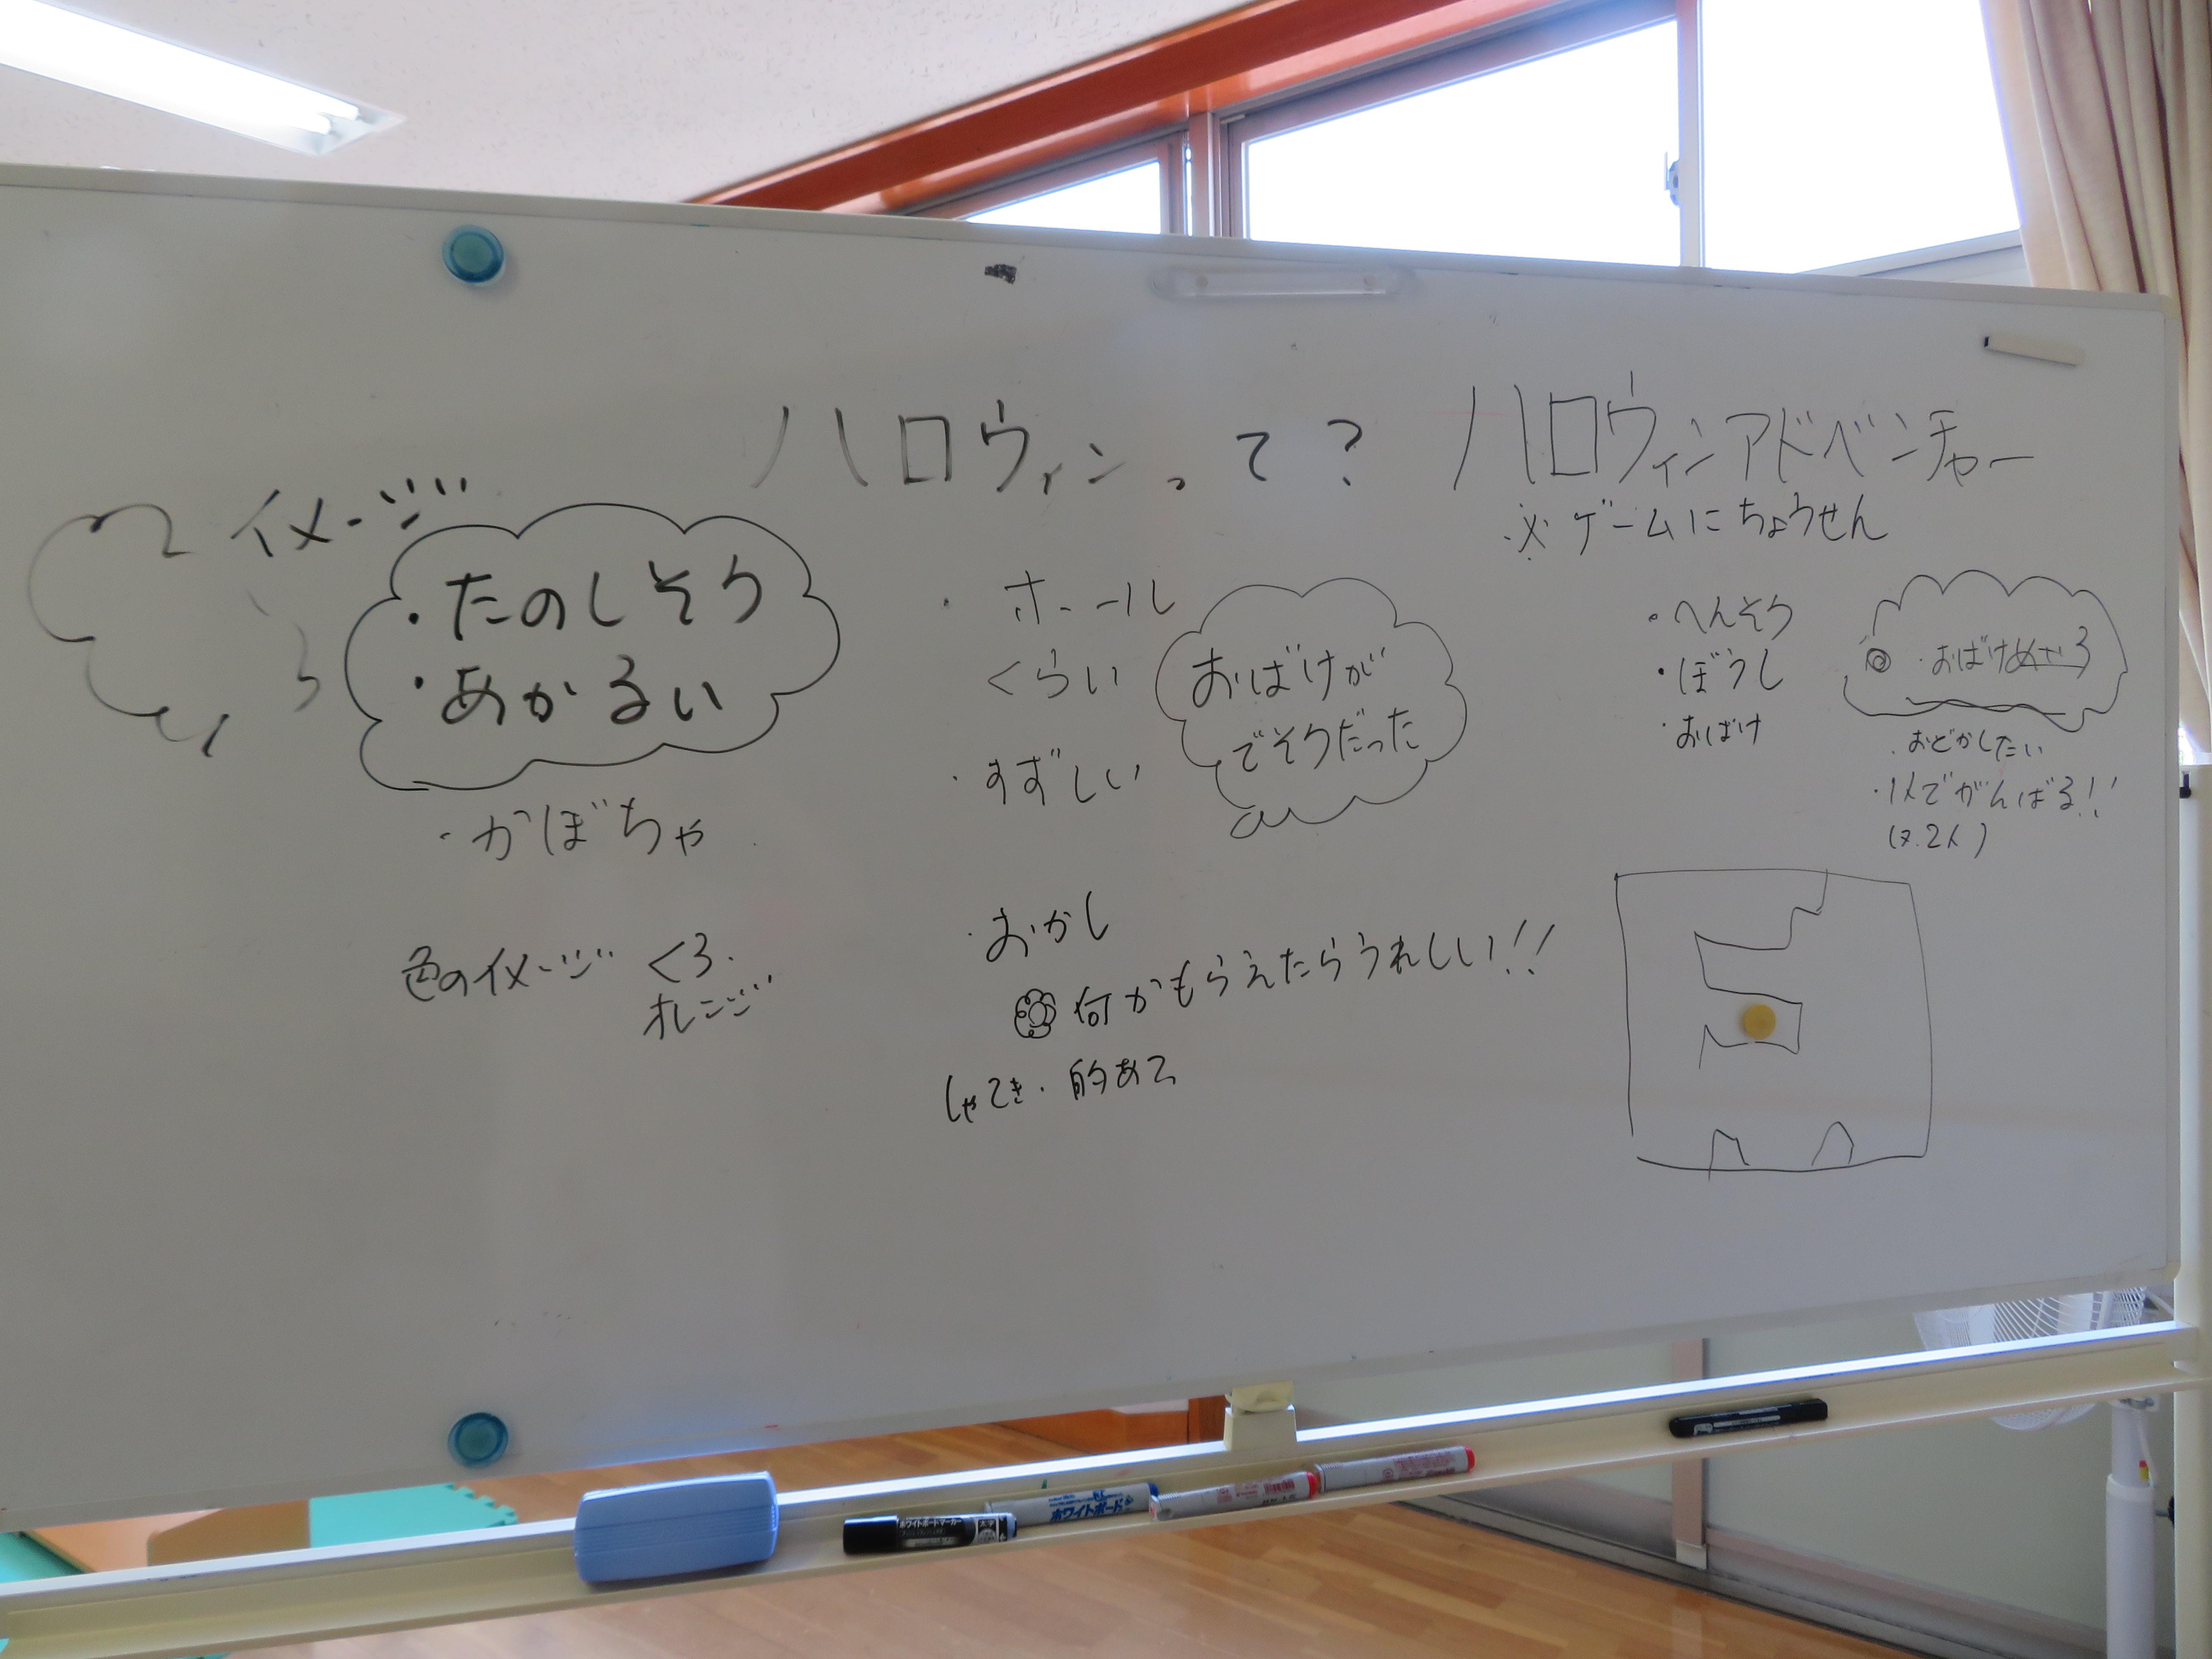 ハロウィンって?
イメージ
・たのしそう
・あかるい
・かぼちゃ
色のイメージ くろ.
オレンジ
・ホール
くらい
・すずしい
おばけが
でそうだった
・おかし
何かもらえたらうれしい!!
しゃてき・的あて
ハロウィンアドベンチャー
※ゲームにちょうせん
・へんそう
・ぼうし
・おばけ
◎・おばけ
・おどかしたい
・1人でがんばる!!
2人)
ホワイトボードマーカー
ホワイトボード